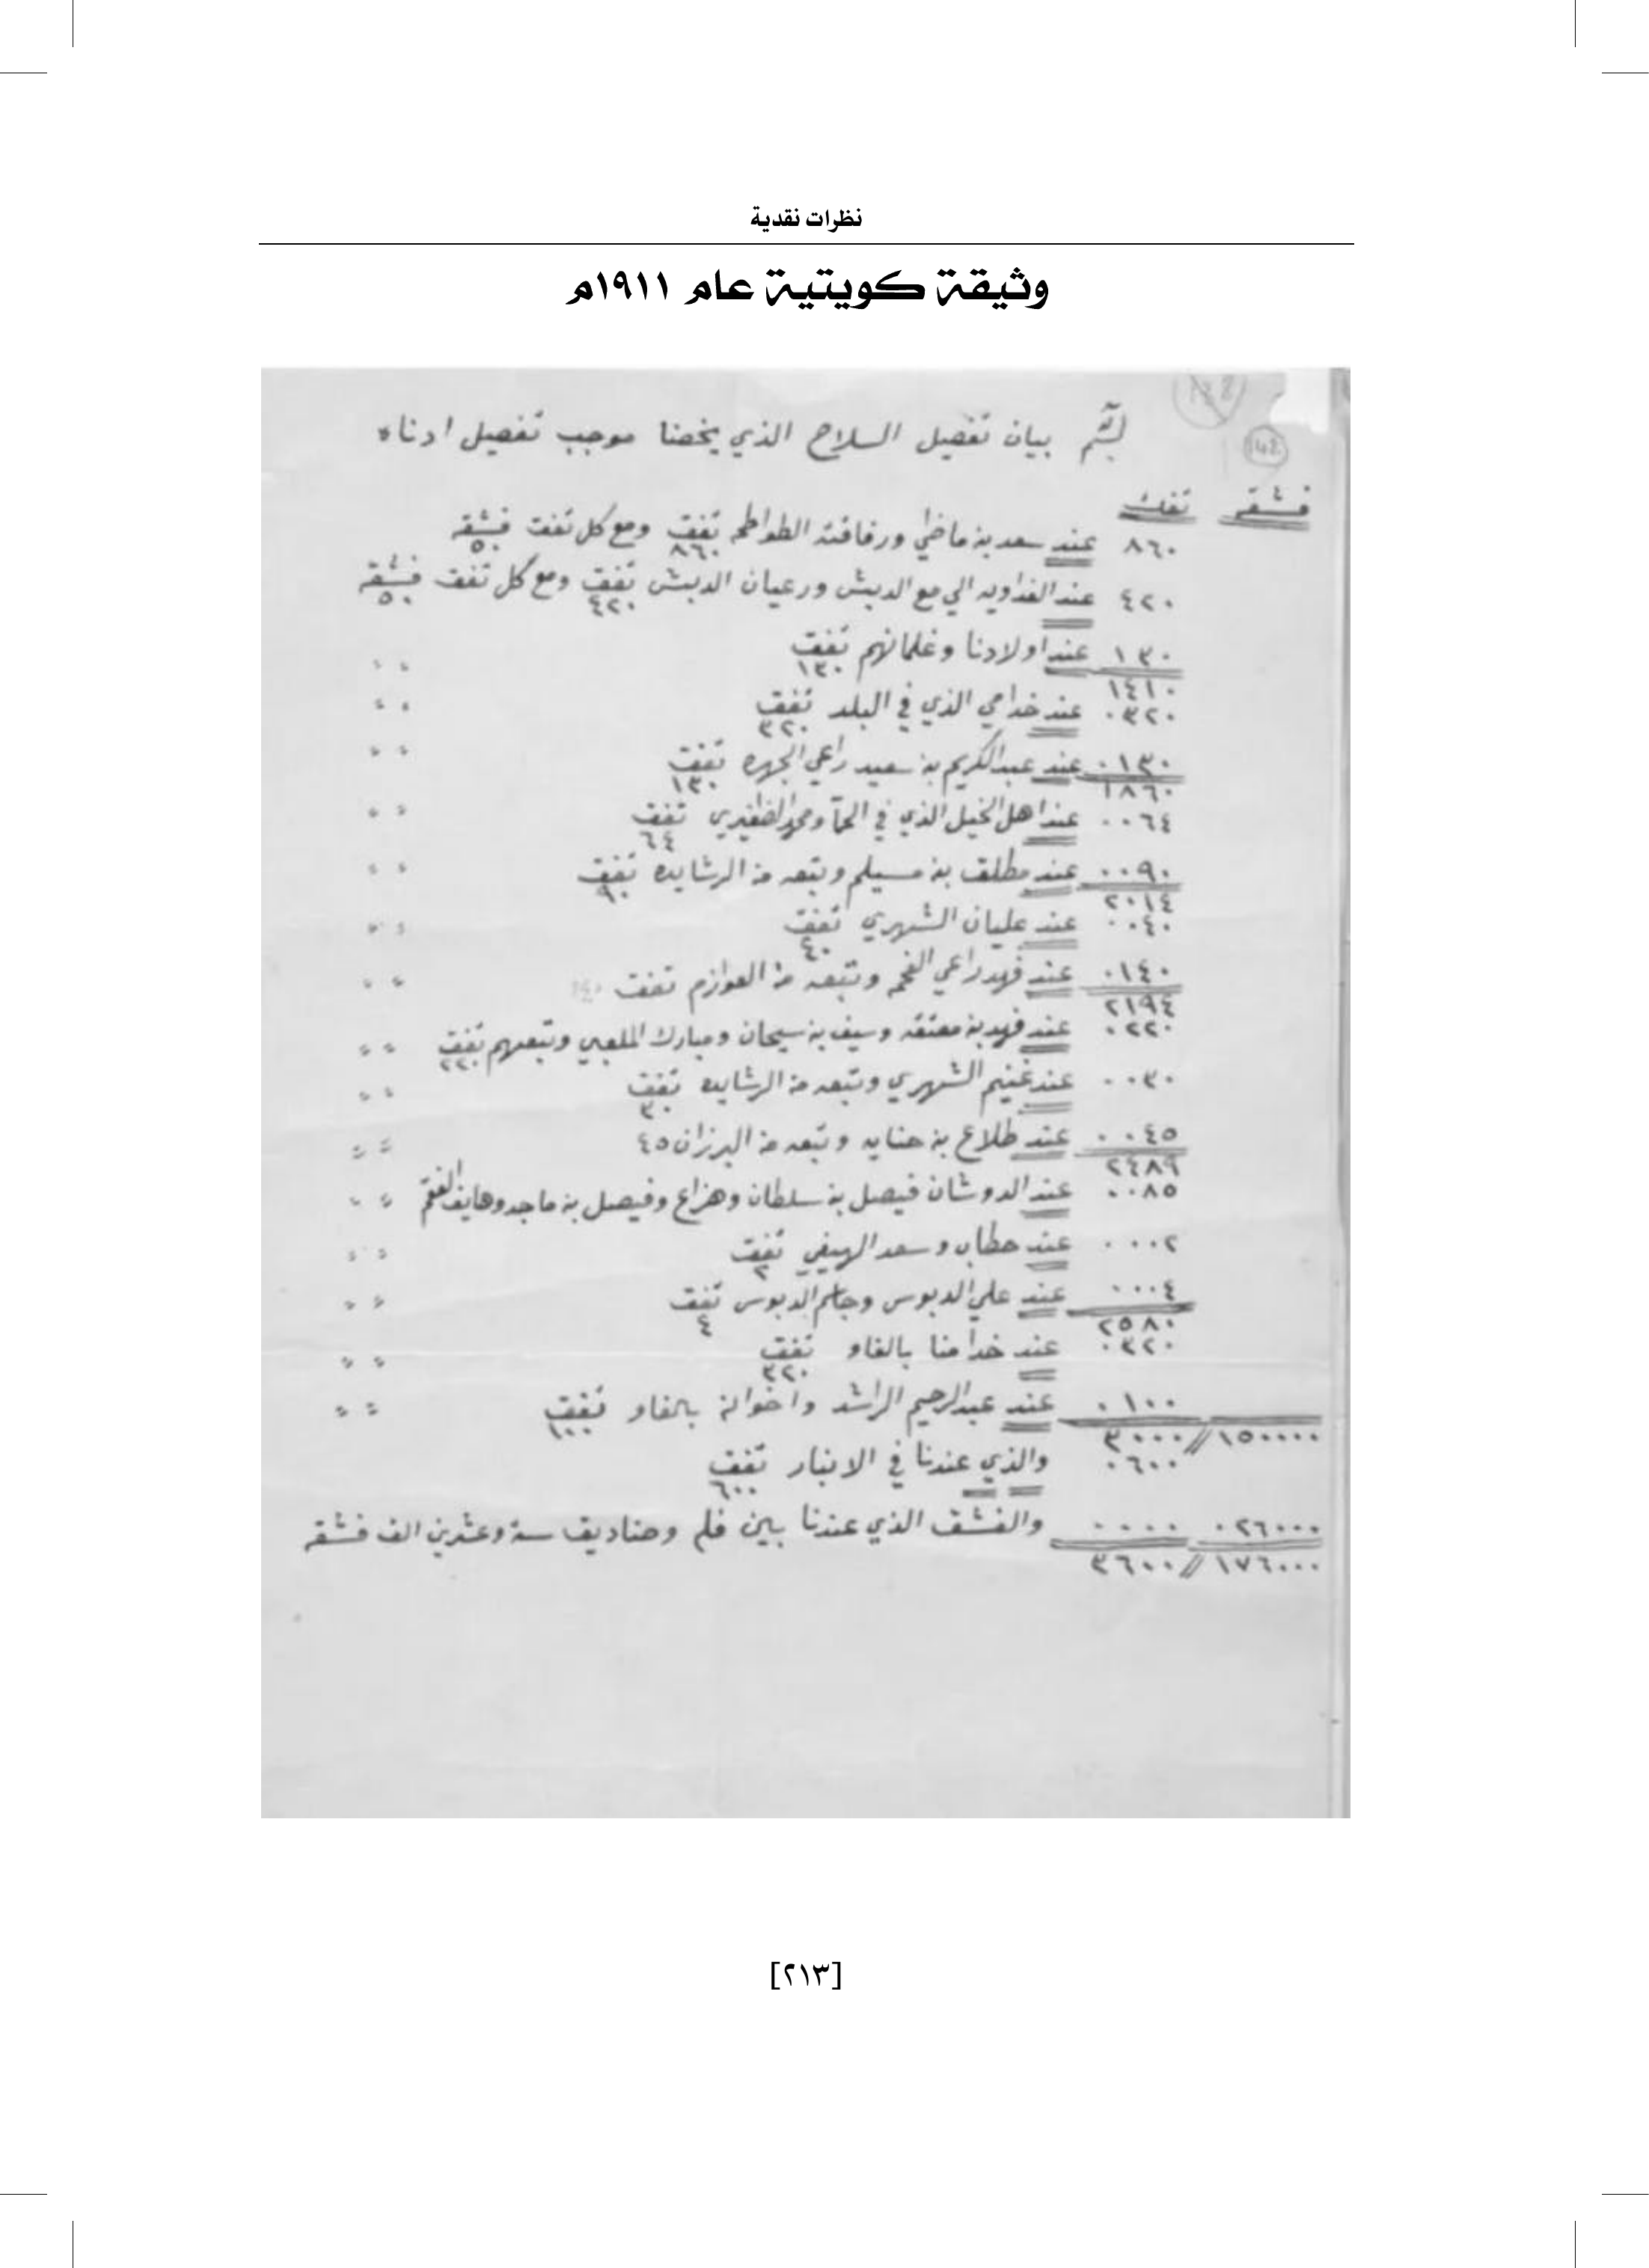 نظرات نقدية
وثيقة كويتية عام ١٩١١م
142
بيان تفصيل السلاح الذي يخصنا موجب تفصيل ادناه
فشقه تفك
٨٦٠ عند سعد بن ماضي ورفاقته الطواطحه تفق ٨٦٠ ومع كل تفقت فشقه ٥٠
٤٢٠ عند الفداويه الي مع الدبش ورعيان الدبش تفق ٤٢٠ ومع كل تفقت فشقه ٥٠
١٣٠ عند اولادنا وغلمانهم تفقت ١٣٠ " "
١٤١٠
٠٣٢٠ عند خدامي الذي في البلد تفقت ٣٢٠ " "
٠١٣٠ عند عبدالكريم بن سعيد راعي الجهره تفقت ١٣٠ " "
١٨٦٠
٠٠٦٤ عند اهل الخيل الذي في ومحمد الضفيري تفقت ٦٤ " "
٠٠٩٠ عند مطلق بن مسيلم وتبعه من الرشايده تفقت ٩٠ " "
٢٠١٤
٠٠٤٠ عند عليان الشهري تفقت ٤٠ " "
٠١٤٠ عند فهد راعي الفحم وتبعه من العوازم تفقت ١٤٠ " "
٢١٩٤
٠٢٢٠ عند فهد بن معتقه وسيف بن سيحان ومبارك الملعبي وتبعهم تفقت ٢٢٠ " "
٠٠٣٠ عند غنيم الشهري وتبعه من الرشايده تفقت ٣٠ " "
٠٠٤٥ عند طلاع بن حنايه وتبعه من البرزان ٤٥ " "
٢٤٨٩
٠٠٨٥ عند الدوشان فيصل بن سلطان وهزاع وفيصل بن ماجد وهايف الفغم " "
٠٠٠٢ عند حطاب وسعد الهيفي تفقت ٢ " "
٠٠٠٤ عند علي الدبوس وجاسم الدبوس تفقت ٤ " "
٢٥٨٠
٠٣٢٠ عند خدامنا بالفاو تفقت ٣٢٠ " "
٠١٠٠ عند عبدالرحيم الراشد واخوانه بالفاو تفقت ١٠٠ " "
١٥٠٠٠٠ // ٣٠٠٠
٠٦٠٠ والذي عندنا في الانبار تفقت ٦٠٠
٠٢٦٠٠٠ ٠٠٠٠ والفشق الذي عندنا بين فلم وصناديق ستة وعشرين الف فشقه
١٧٦٠٠٠ // ٣٦٠٠
[٢١٣]